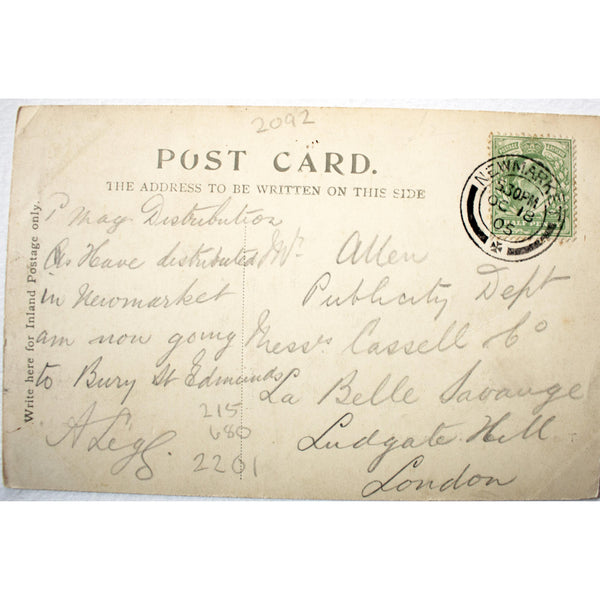 2092
POST CARD.
THE ADDRESS TO BE WRITTEN ON THIS SIDE
Write here for Inland Postage only.
P Mag Distribution
Have distributed
in Newmarket
am now going
to Bury St Edmunds
A Legg.
215
680
2201
Mr. Allen
Publicity Dept
Messrs Cassell & Co
La Belle Savange
Ludgate Hill
London
NEWMARKET
530PM
OC 18
05